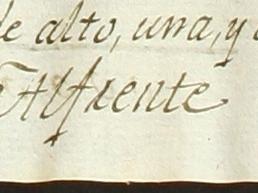 de alto, una, y
Alfrente